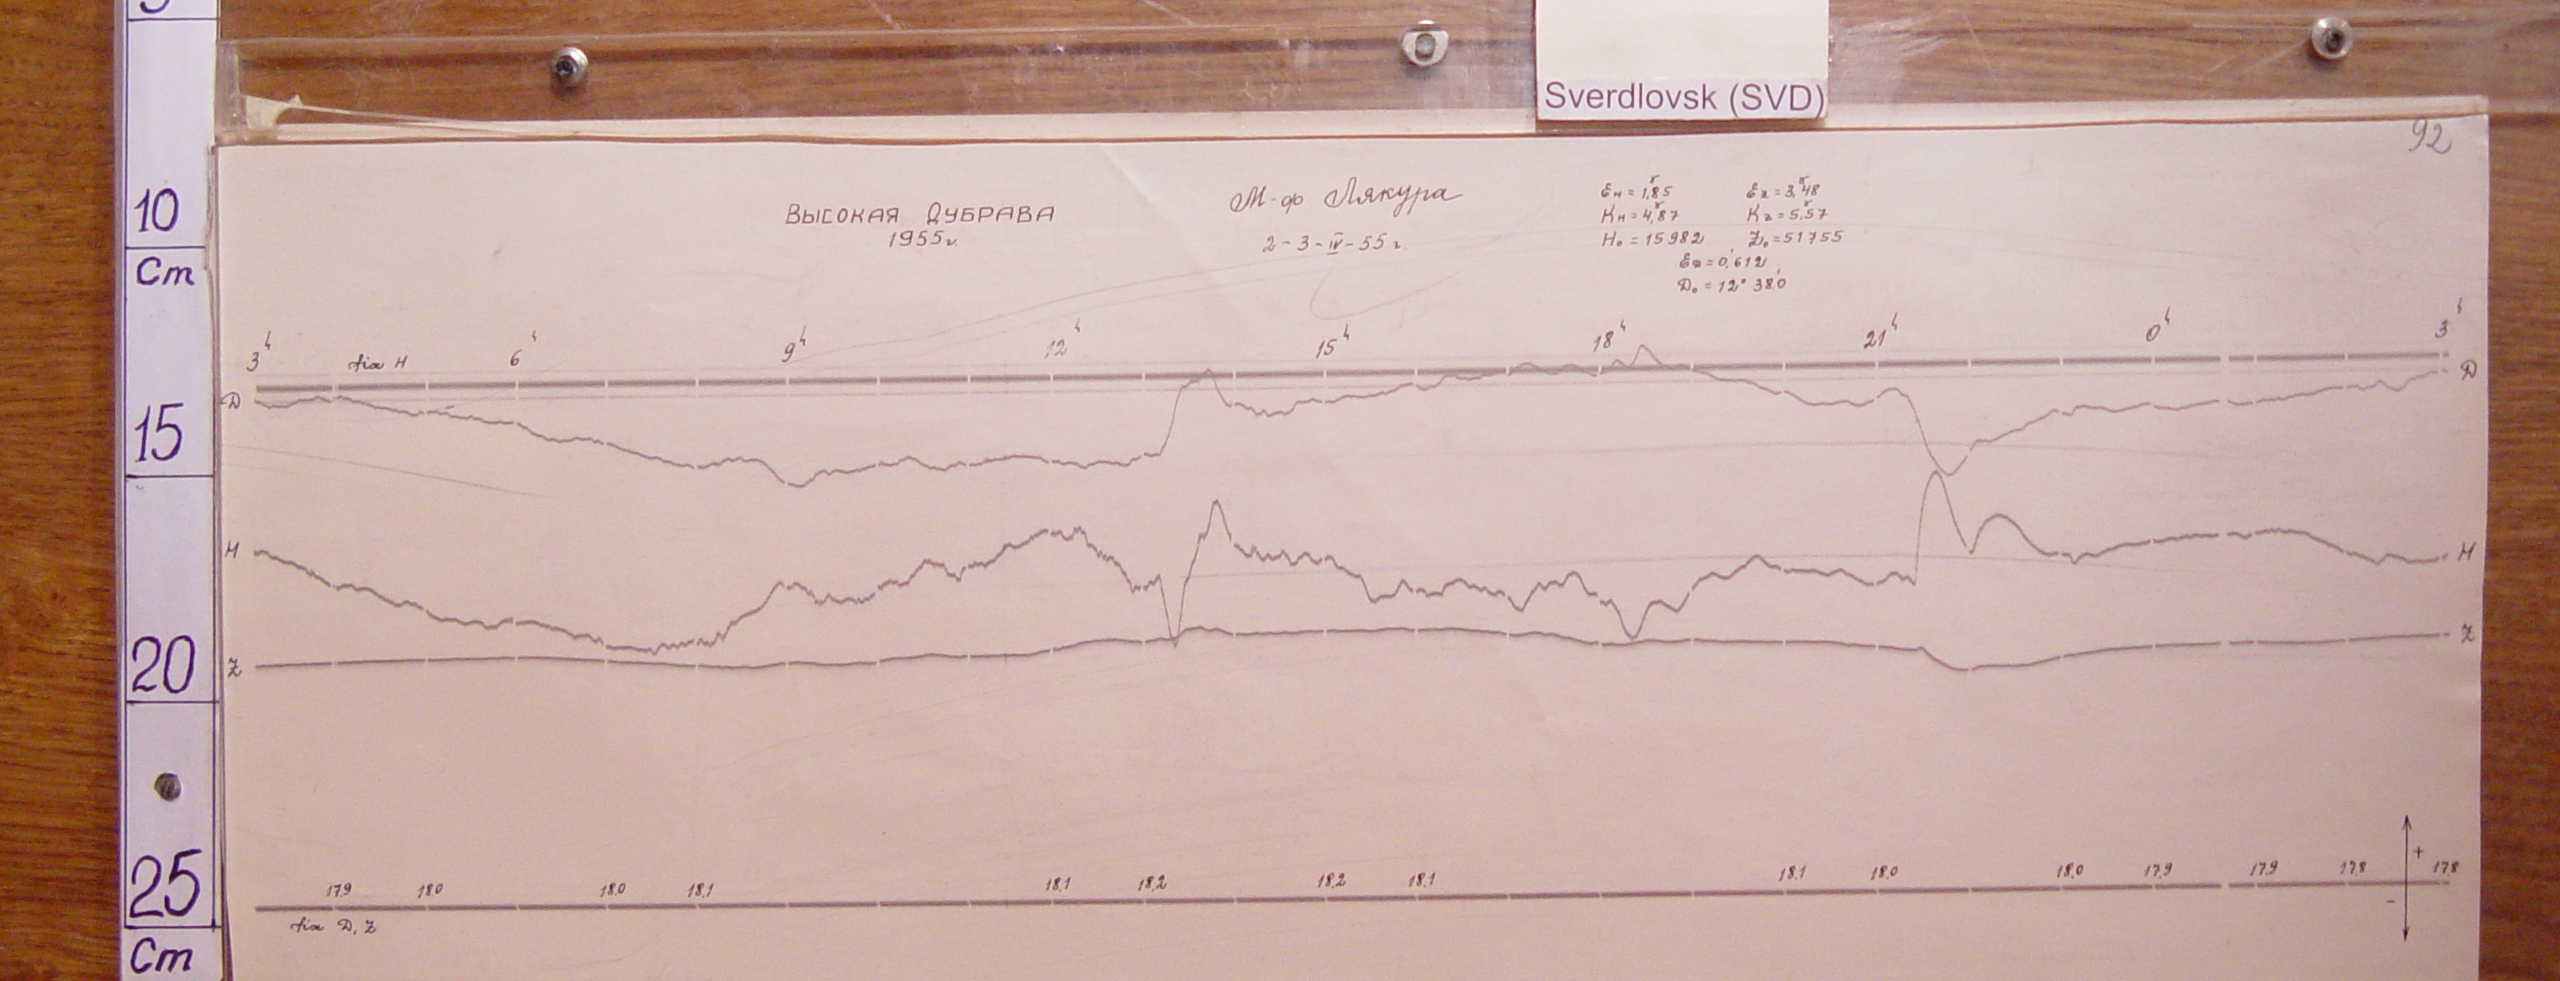 Sverdlovsk (SVD)
92
10
Cm
15
20
25
Cm
Высокая Дубрава
1955г.
М-ф Лякура
2-3-IV-55г.
Eн = 1,85 Ez = 3,48
Kн = 4,87 Kz = 5,57
H₀ = 15982 Z₀ = 51755
E𝒟 = 0,612
D₀ = 12° 38,0
3ʰ 6ʰ 9ʰ 12ʰ 15ʰ 18ʰ 21ʰ 0ʰ 3ʰ
fix H
D D
H H
Z Z
17.9 18.0 18.0 18.1 18.1 18.2 18.2 18.1 18.1 18.0 18.0 17.9 17.9 17.8 17.8
+
-
fix D, Z